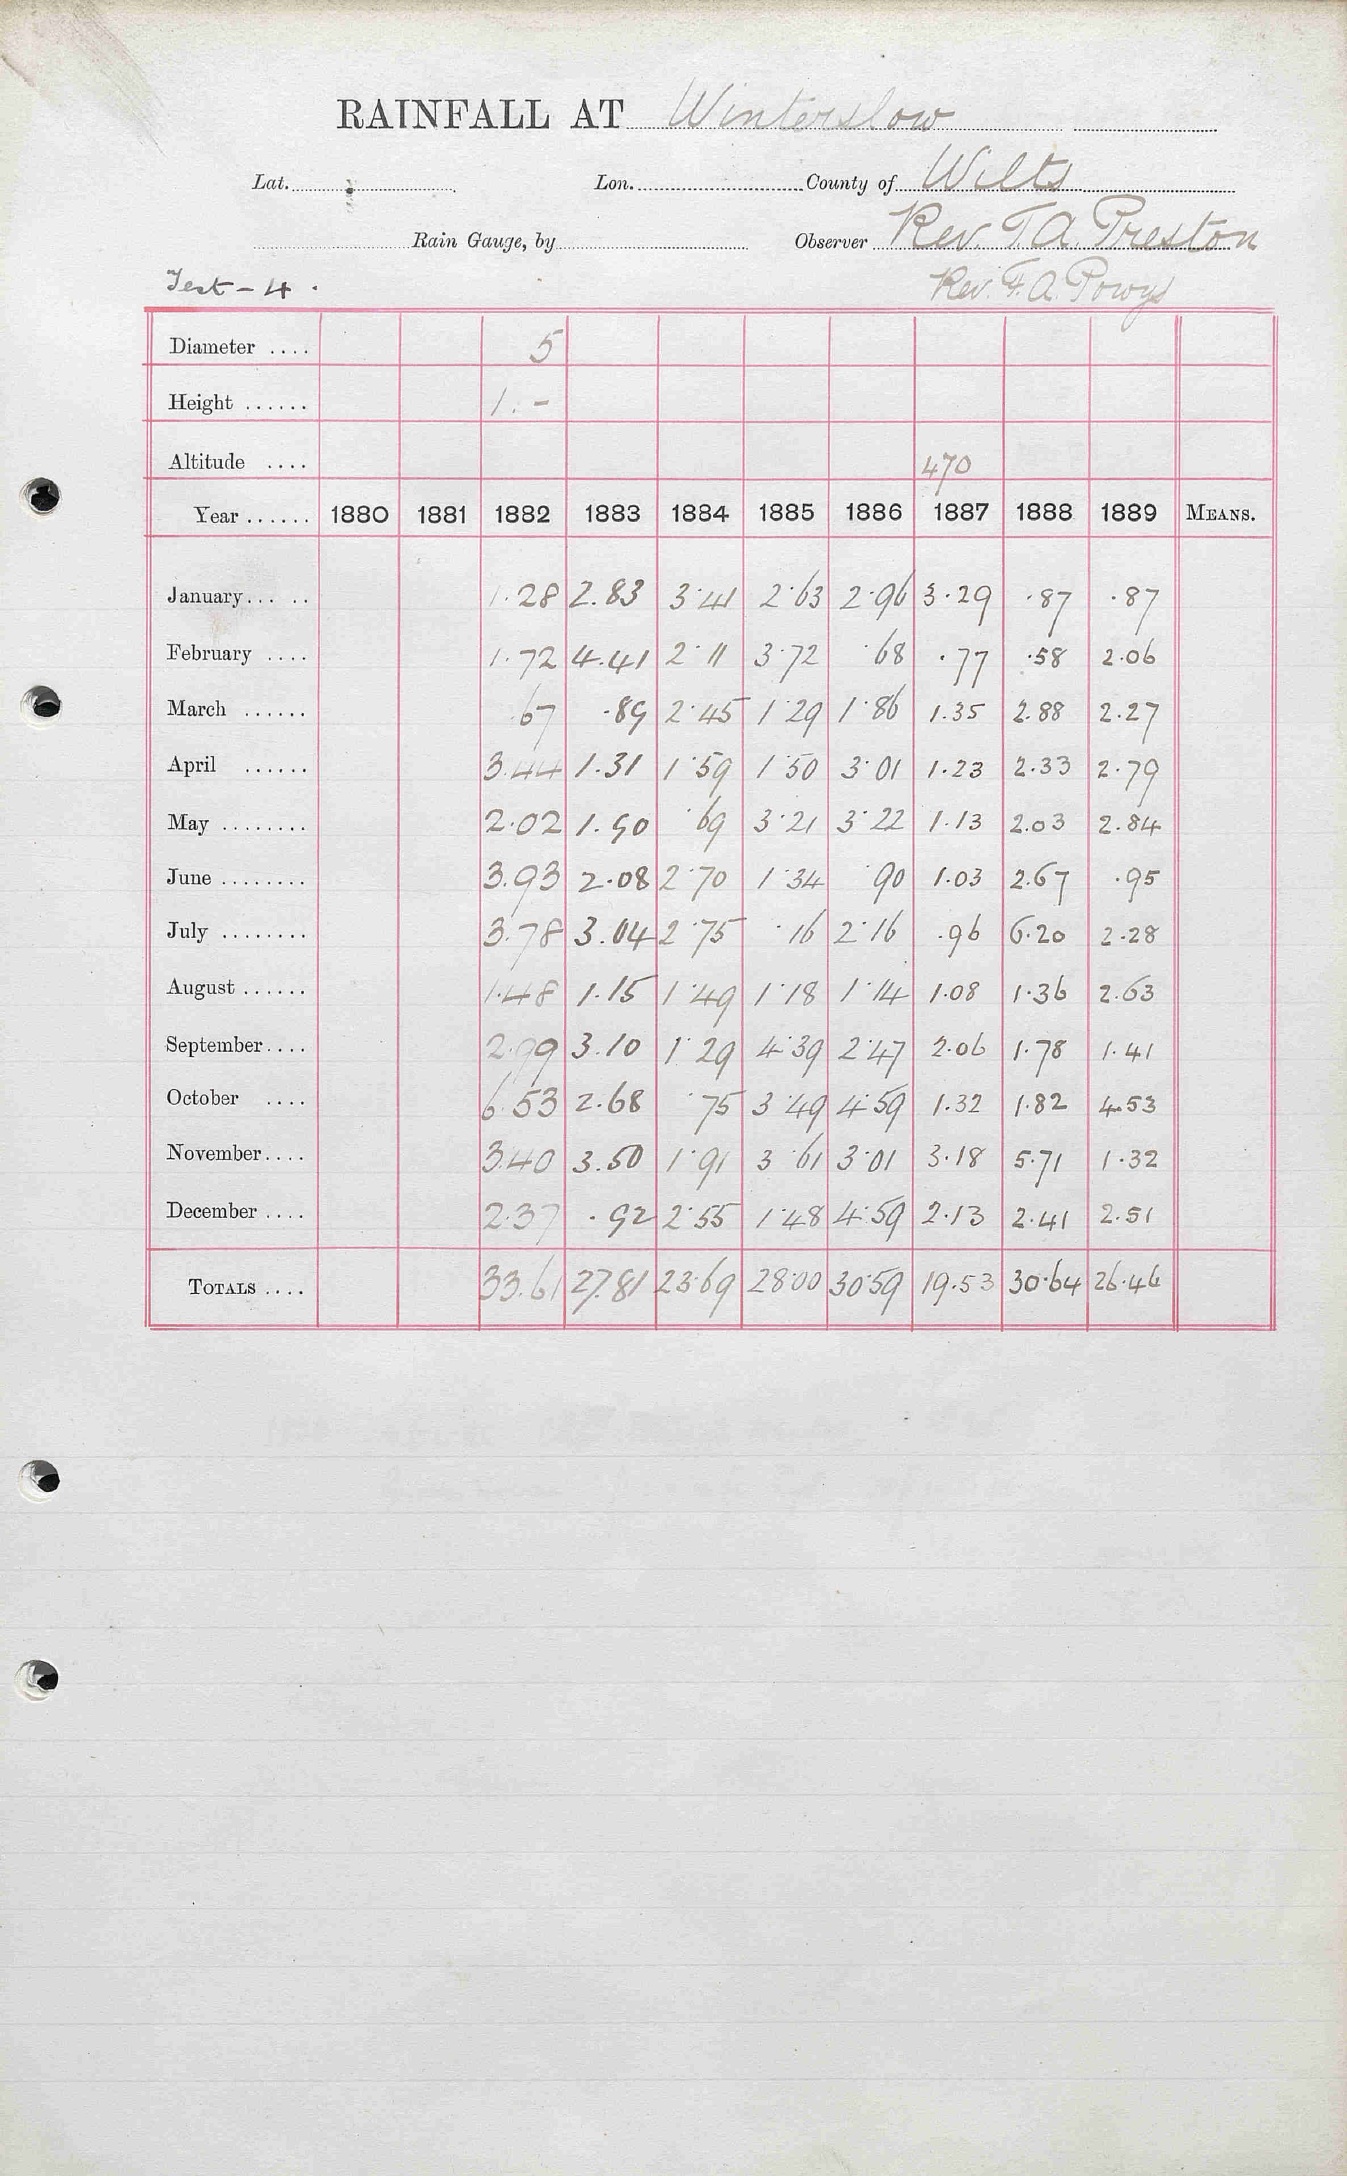 RAINFALL AT Winterslow
Lat. Lon. County of Wilts
Rain Gauge, by Observer Rev. T. A. Preston
Test - 4. Rev. F. A. Powys
Diameter .... 5
Height ...... 1. -
Altitude .... 470
Year ...... 1880 1881 1882 1883 1884 1885 1886 1887 1888 1889 MEANS.
January... .. 1.28 2.83 3.41 2.63 2.96 3.29 .87 .87
February .... 1.72 4.41 2.11 3.72 .68 .77 .58 2.06
March ...... .67 .89 2.45 1.29 1.86 1.35 2.88 2.27
April ...... 3.44 1.31 1.59 1.50 3.01 1.23 2.33 2.79
May ........ 2.02 1.90 .69 3.21 3.22 1.13 2.03 2.84
June ........ 3.93 2.08 2.70 1.34 .90 1.03 2.67 .95
July ........ 3.78 3.04 2.75 .16 2.16 .96 6.20 2.28
August ...... 1.48 1.15 1.49 1.18 1.14 1.08 1.36 2.63
September.... 2.99 3.10 1.29 4.39 2.47 2.06 1.78 1.41
October .... 6.53 2.68 .75 3.49 4.59 1.32 1.82 4.53
November.... 3.40 3.50 1.91 3.61 3.01 3.18 5.71 1.32
December .... 2.37 .92 2.55 1.48 4.59 2.13 2.41 2.51
TOTALS .... 33.61 27.81 23.69 28.00 30.59 19.53 30.64 26.46